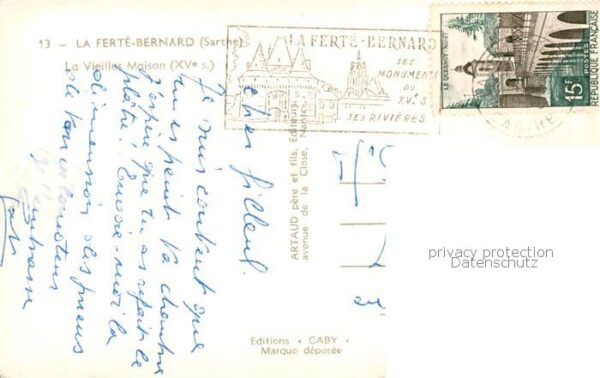 13 - LA FERTÉ-BERNARD (Sarthe)
La Vieilles Maison (XVe s.)
LA FERTÉ-BERNARD
SES
MONUMENTS
DU
XVe S
SES RIVIÈRES
LE QUESNOY
15F
POSTES
REPUBLIQUE FRANÇAISE
Cher filleul.
Je suis content que
tu es peint ta chambre
J'espère que tu as refait le
plâtre! Envoie-moi la
dimension des pneus
de ton vélomoteur
ARTAUD père et fils, Editeurs
avenue de la Close, Nantes
Editions "GABY"
Marque déposée
privacy protection
Datenschutz